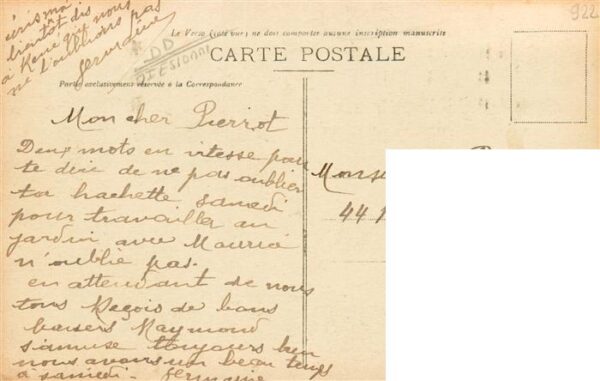 écris moi
bientôt dis
à René que nous
ne l'oublions pas
Germaine
922
Le Verso (côté vue) ne doit comporter aucune inscription manuscrite
CARTE POSTALE
Partie exclusivement réservée à la Correspondance
Mon cher Pierrot
Deux mots en vitesse pour
te dire de ne pas oublier
ta hachette samedi
pour travailler au
jardin avec Maurice
n'oublie pas.
en attendant de nous
tous Reçois de bons
baisers Raymond
s'amuse toujours bien
nous avons un beau temps
à samedi. Germaine
44